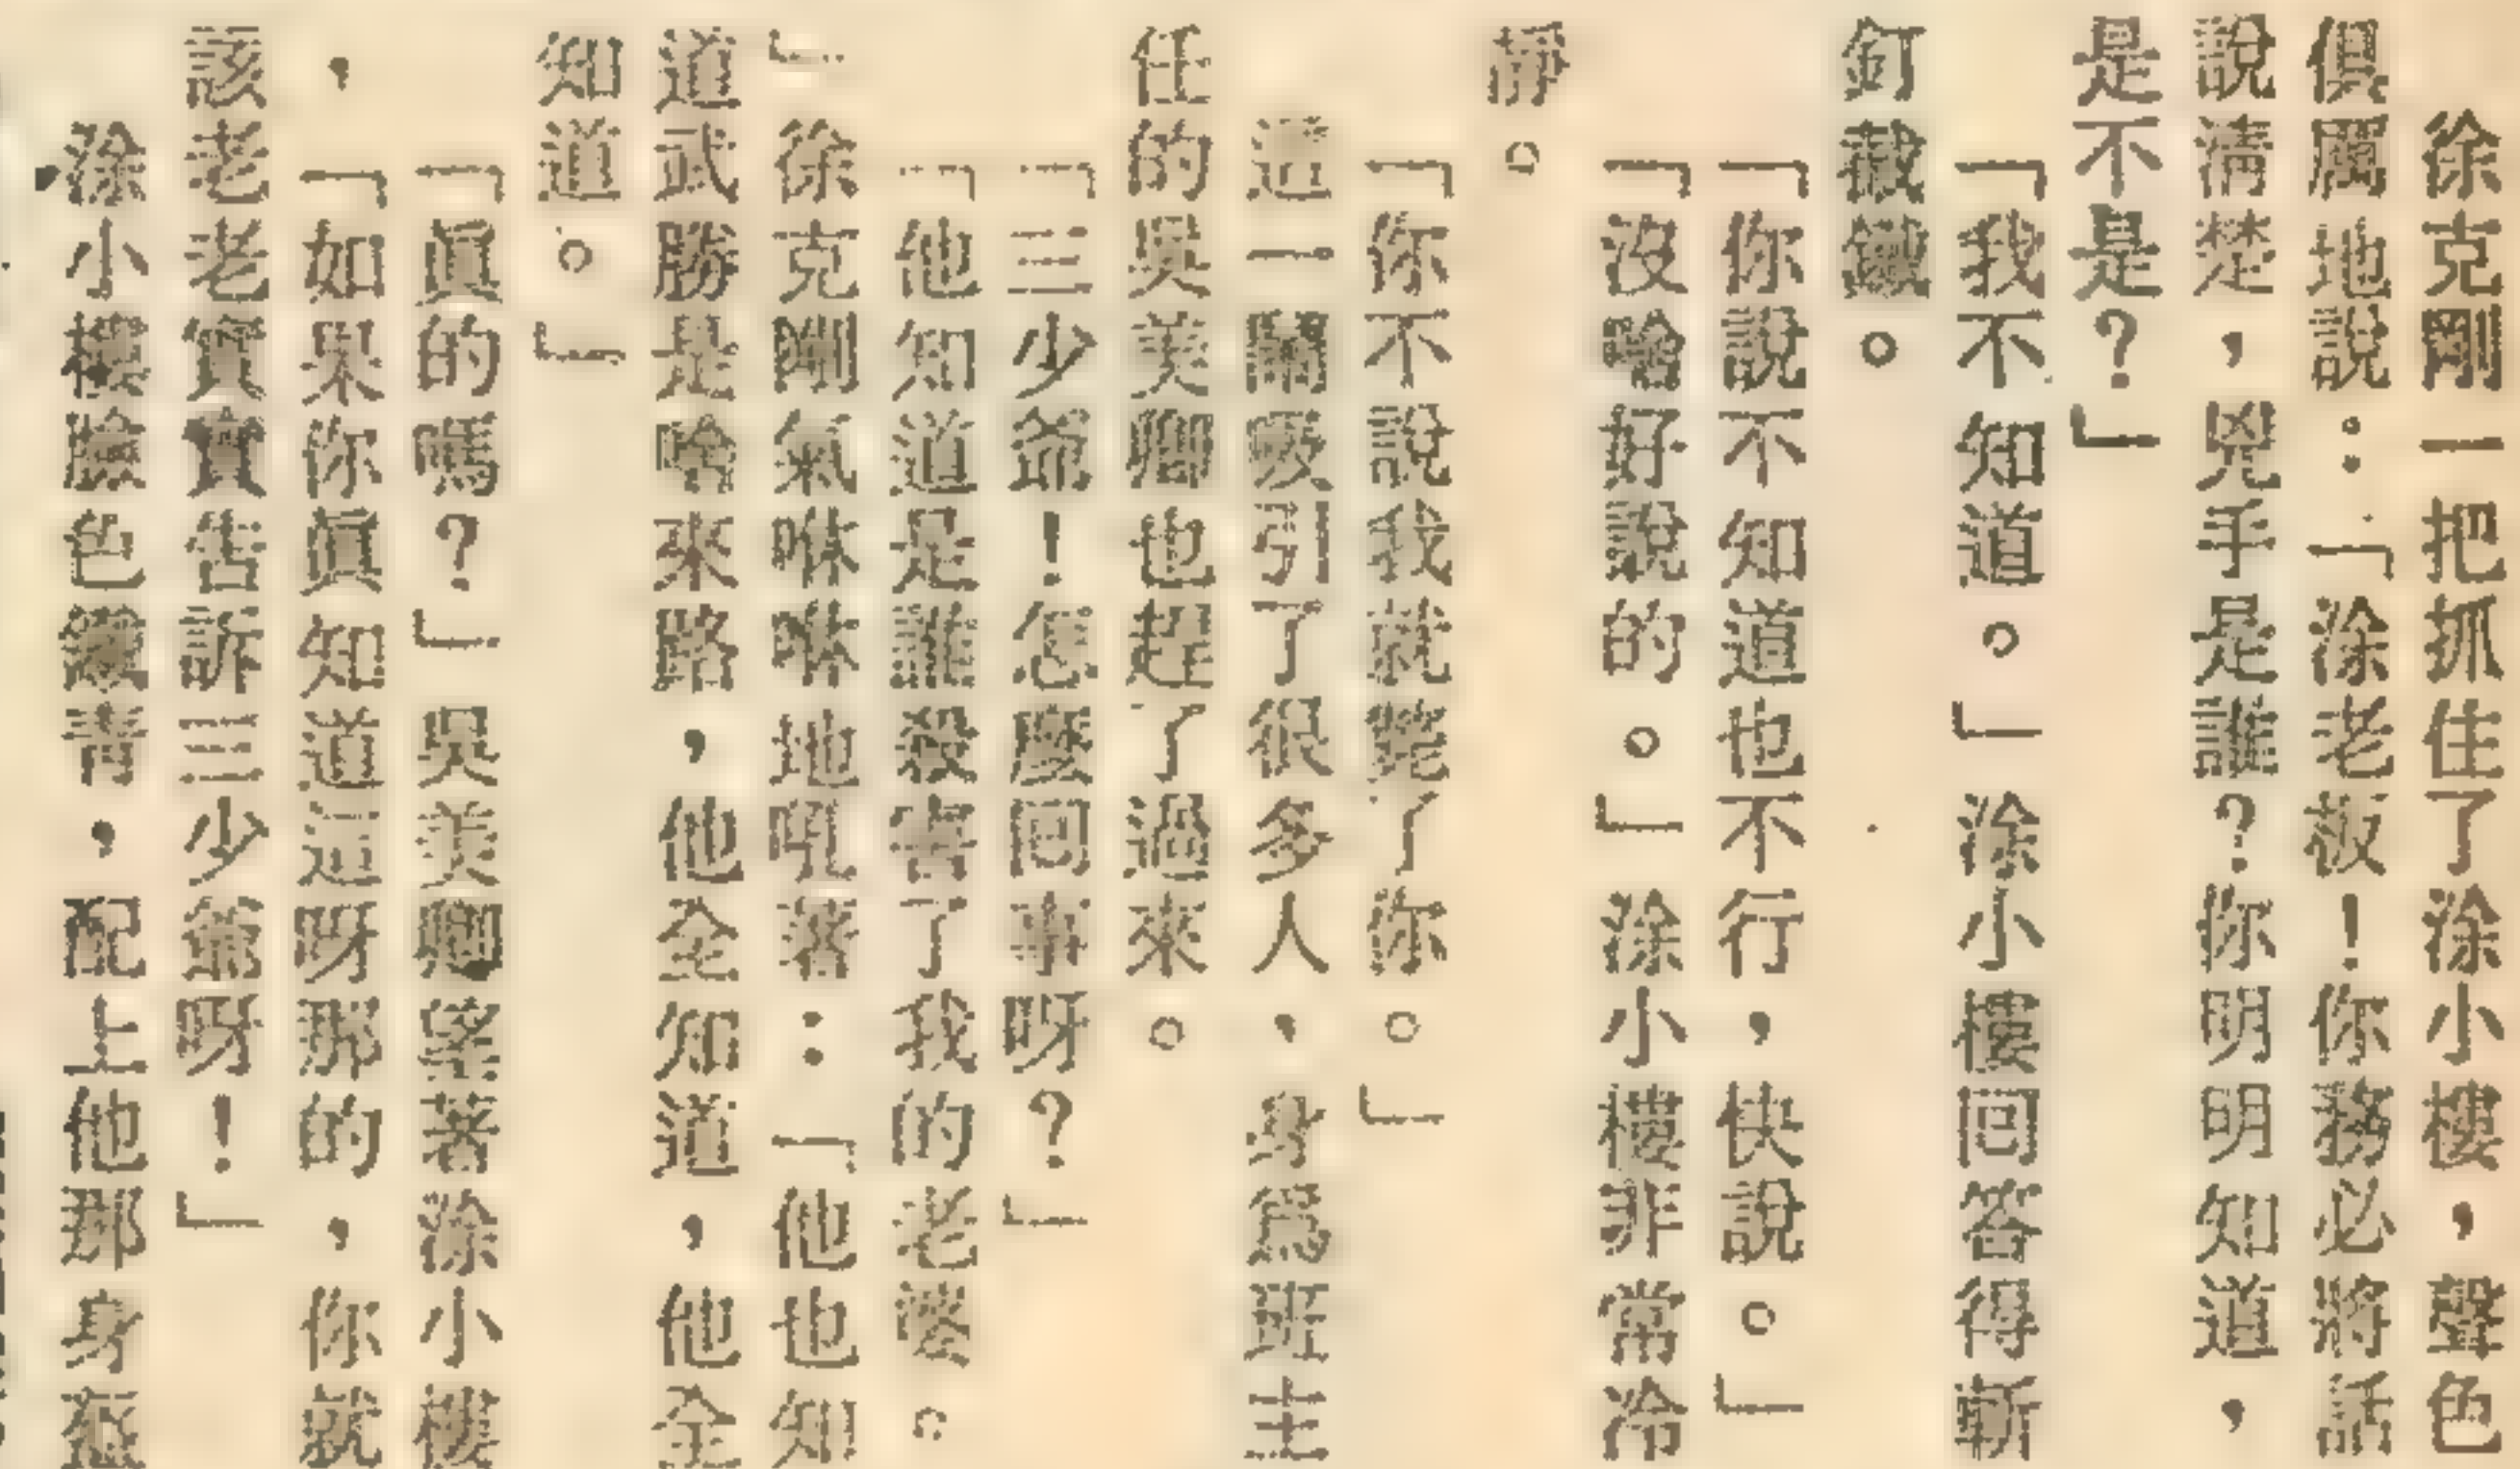 徐克剛一把抓住了涂小樓，聲色
俱厲地說：「涂老板！你務必將話
說清楚，兇手是誰？你明明知道，
是不是？」
「我不知道。」涂小樓回答得斬
釘截鐵。
「你說不知道也不行，快說。」
「沒啥好說的。」涂小樓非常冷
靜。
「你不說我就斃了你。」
這一鬧吸引了很多人，身爲班主
任的吳美卿也趕了過來。
「三少爺！怎麼回事呀？」
「他知道是誰殺害了我的老婆。
」徐克剛氣咻咻地吼著：「他也知
道武勝是啥來路，他全知道，他全
知道。」
「眞的嗎？」吳美卿望著涂小樓
，「如果你眞知道這呀那的，你就
該老老實實告訴三少爺呀！」
涂小樓臉色鐵青，配上他那身